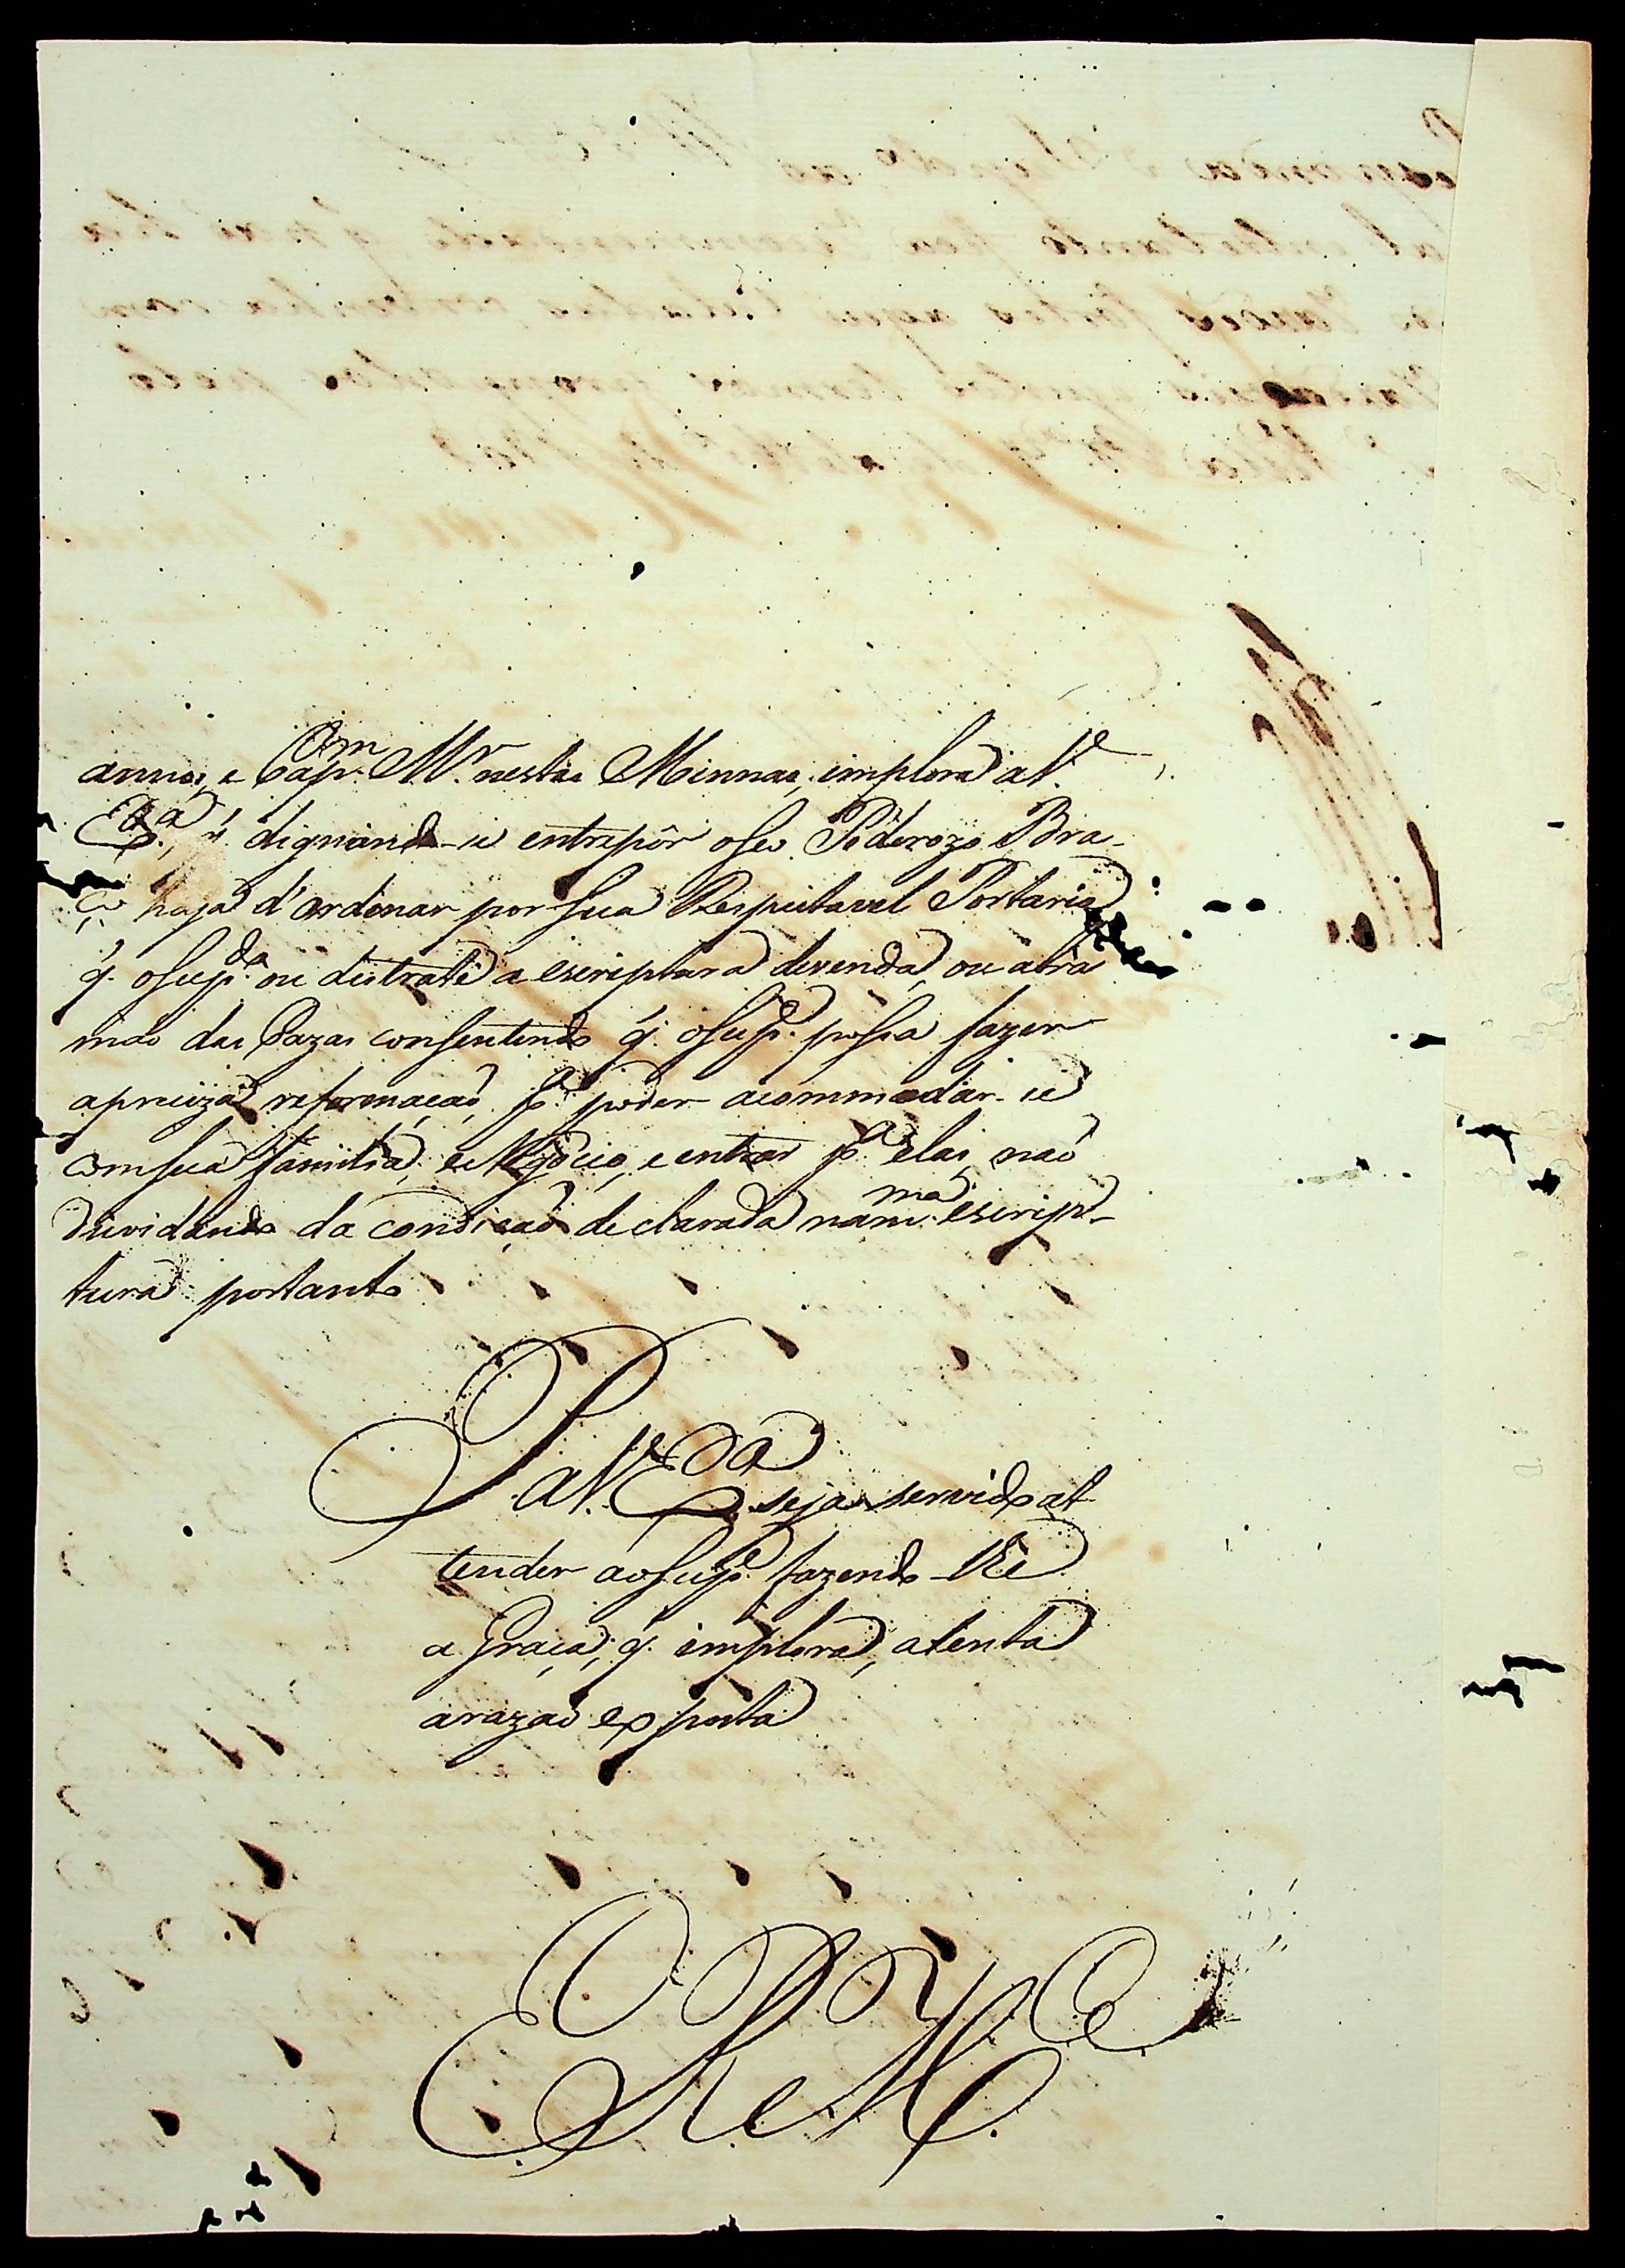 annos, e Cap.am M.r nestas Minnas, implora a V.e
Ex.a, q. dignando-se entrepôr oseo Poderozo Bra-
ço haja d'ordenar por sua Respeitavel Portaria
q. osup.do ou distrate a escriptura devenda, ou abra
mão das Cazas consentindo q. osup.e possa fazer
apreciza reformação, p.a poder acommodar-se
comsua familia, e Negocio, e entrar p.a elas, não
duvidando da condição declarada nam.ma escrip-
tura portanto
P. a V.e Ex.a seja servido at-
tender aosup.e fazendo-lhe
a Graça, q. implora, atenta
arazaõ exposta
E R M.ce